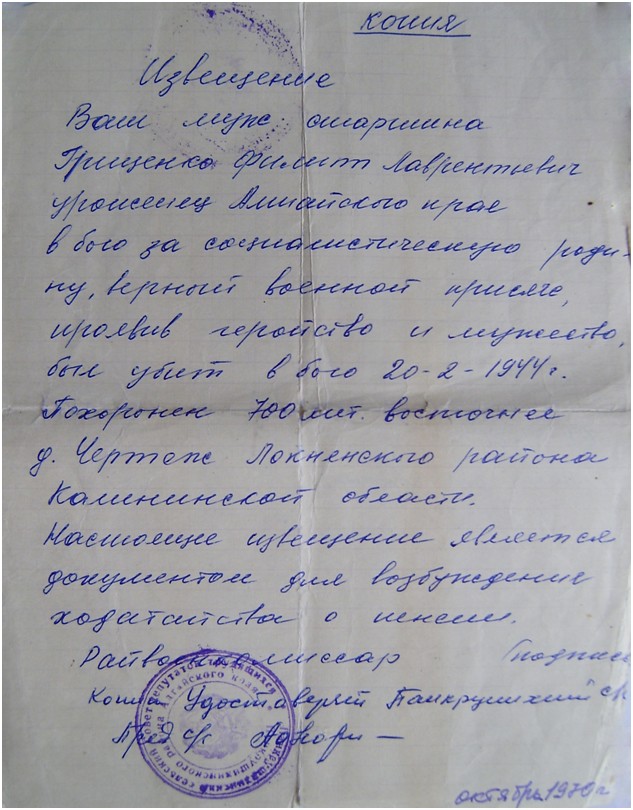 копия
Извещение
Ваш муж старшина
Грищенко Филипп Лаврентьевич
уроженец Алтайского края
в бою за социалистическую роди-
ну, верный военной присяге,
проявив геройство и мужество,
был убит в бою 20-2-1944г.
Похоронен 700 мт. восточнее
д. Чертеж Локненского района
Калининской области.
Настоящие извещение является
документом для возбуждение
ходатайства о пенсии.
Райвоенкомиссар (подпись
Копия Удостоверят Панкрушихий с/с
Пред с/с
октябрь 1970г